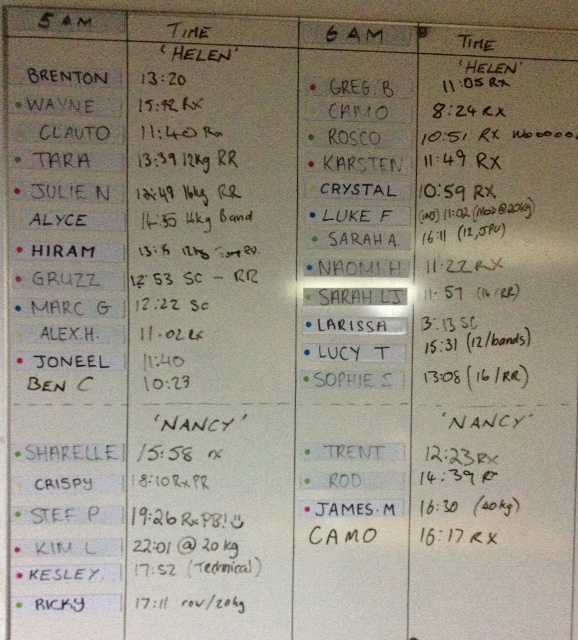 5 AM TIME 6 AM TIME
'HELEN' 'HELEN'
BRENTON 13:20 GREG. B 11:05 RX
WAYNE 15:42 Rx CAMO 8:24 RX
CLAUTO 11:40 Rx ROSCO 10:51 RX
TARA 13:39 12kg RR KARSTEN 11:49 RX
JULIE N 16kg RR CRYSTAL 10:59 RX
ALYCE Band LUKE F 11:02 (MOD @ 20kg)
HIRAM 12kg SARAH A. 16:11 (12, JPU)
GRUZZ 12:53 SC - RR NAOMI H 11:22 RX
MARC G 12:22 SC SARAH LJ 11:57 (16/RR)
ALEX.H. 11:02 RX LARISSA 13:13 SC
JONEEL 11:40 LUCY T 15:31 (12/bands)
BEN C 10:23 SOPHIE S 13:08 (16/RR)
'NANCY' 'NANCY'
SHARELLE 15:58 rx TRENT 12:23 RX
CRISPY 18:10 RX PR ROD 14:39 R
STEF P. 19:26 Rx PB!
KIM L 22:01 @ 20kg JAMES.M 16:30 (40kg)
KESLEY. 17:52 (Technical) CAMO 16:17 RX
RICKY 17:11 row/20kg